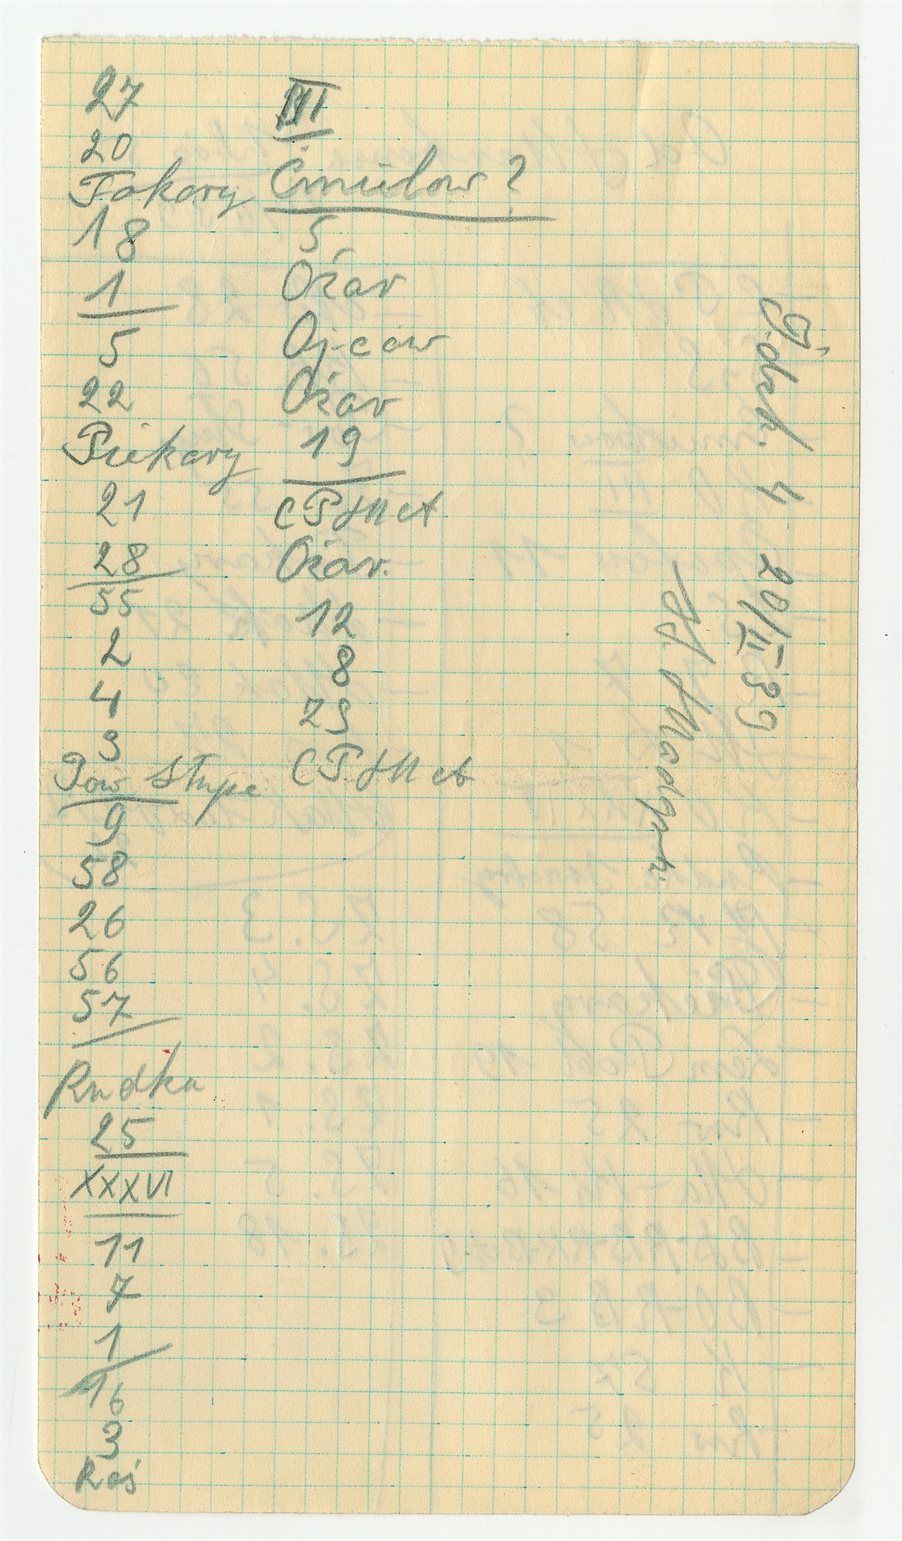 27
20
Tokary
18
1
5
22
Piekary
21
28
55
2
4
9
Pow Słupe
9
58
26
56
57
Rudka
25
XXXVI
11
7
1
16
3
Roś
III
Ćmielow ?
5
Ożar
Ojcow
Ożar
19
CPMet
Ożar.
12
8
29
CPMet
4 20/II 39